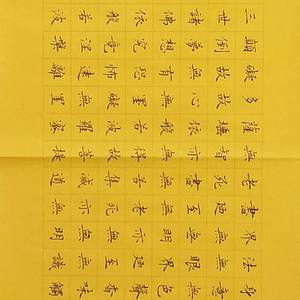 身意無色聲香味觸
法無眼界乃至無意識
界無無明亦無無明
盡乃至無老死亦無
老死盡無苦集滅道
薩埵依般若波羅蜜
多故心無罣礙無罣
礙故無有恐怖遠離
顛倒夢想究竟涅槃
三世諸佛依般若波